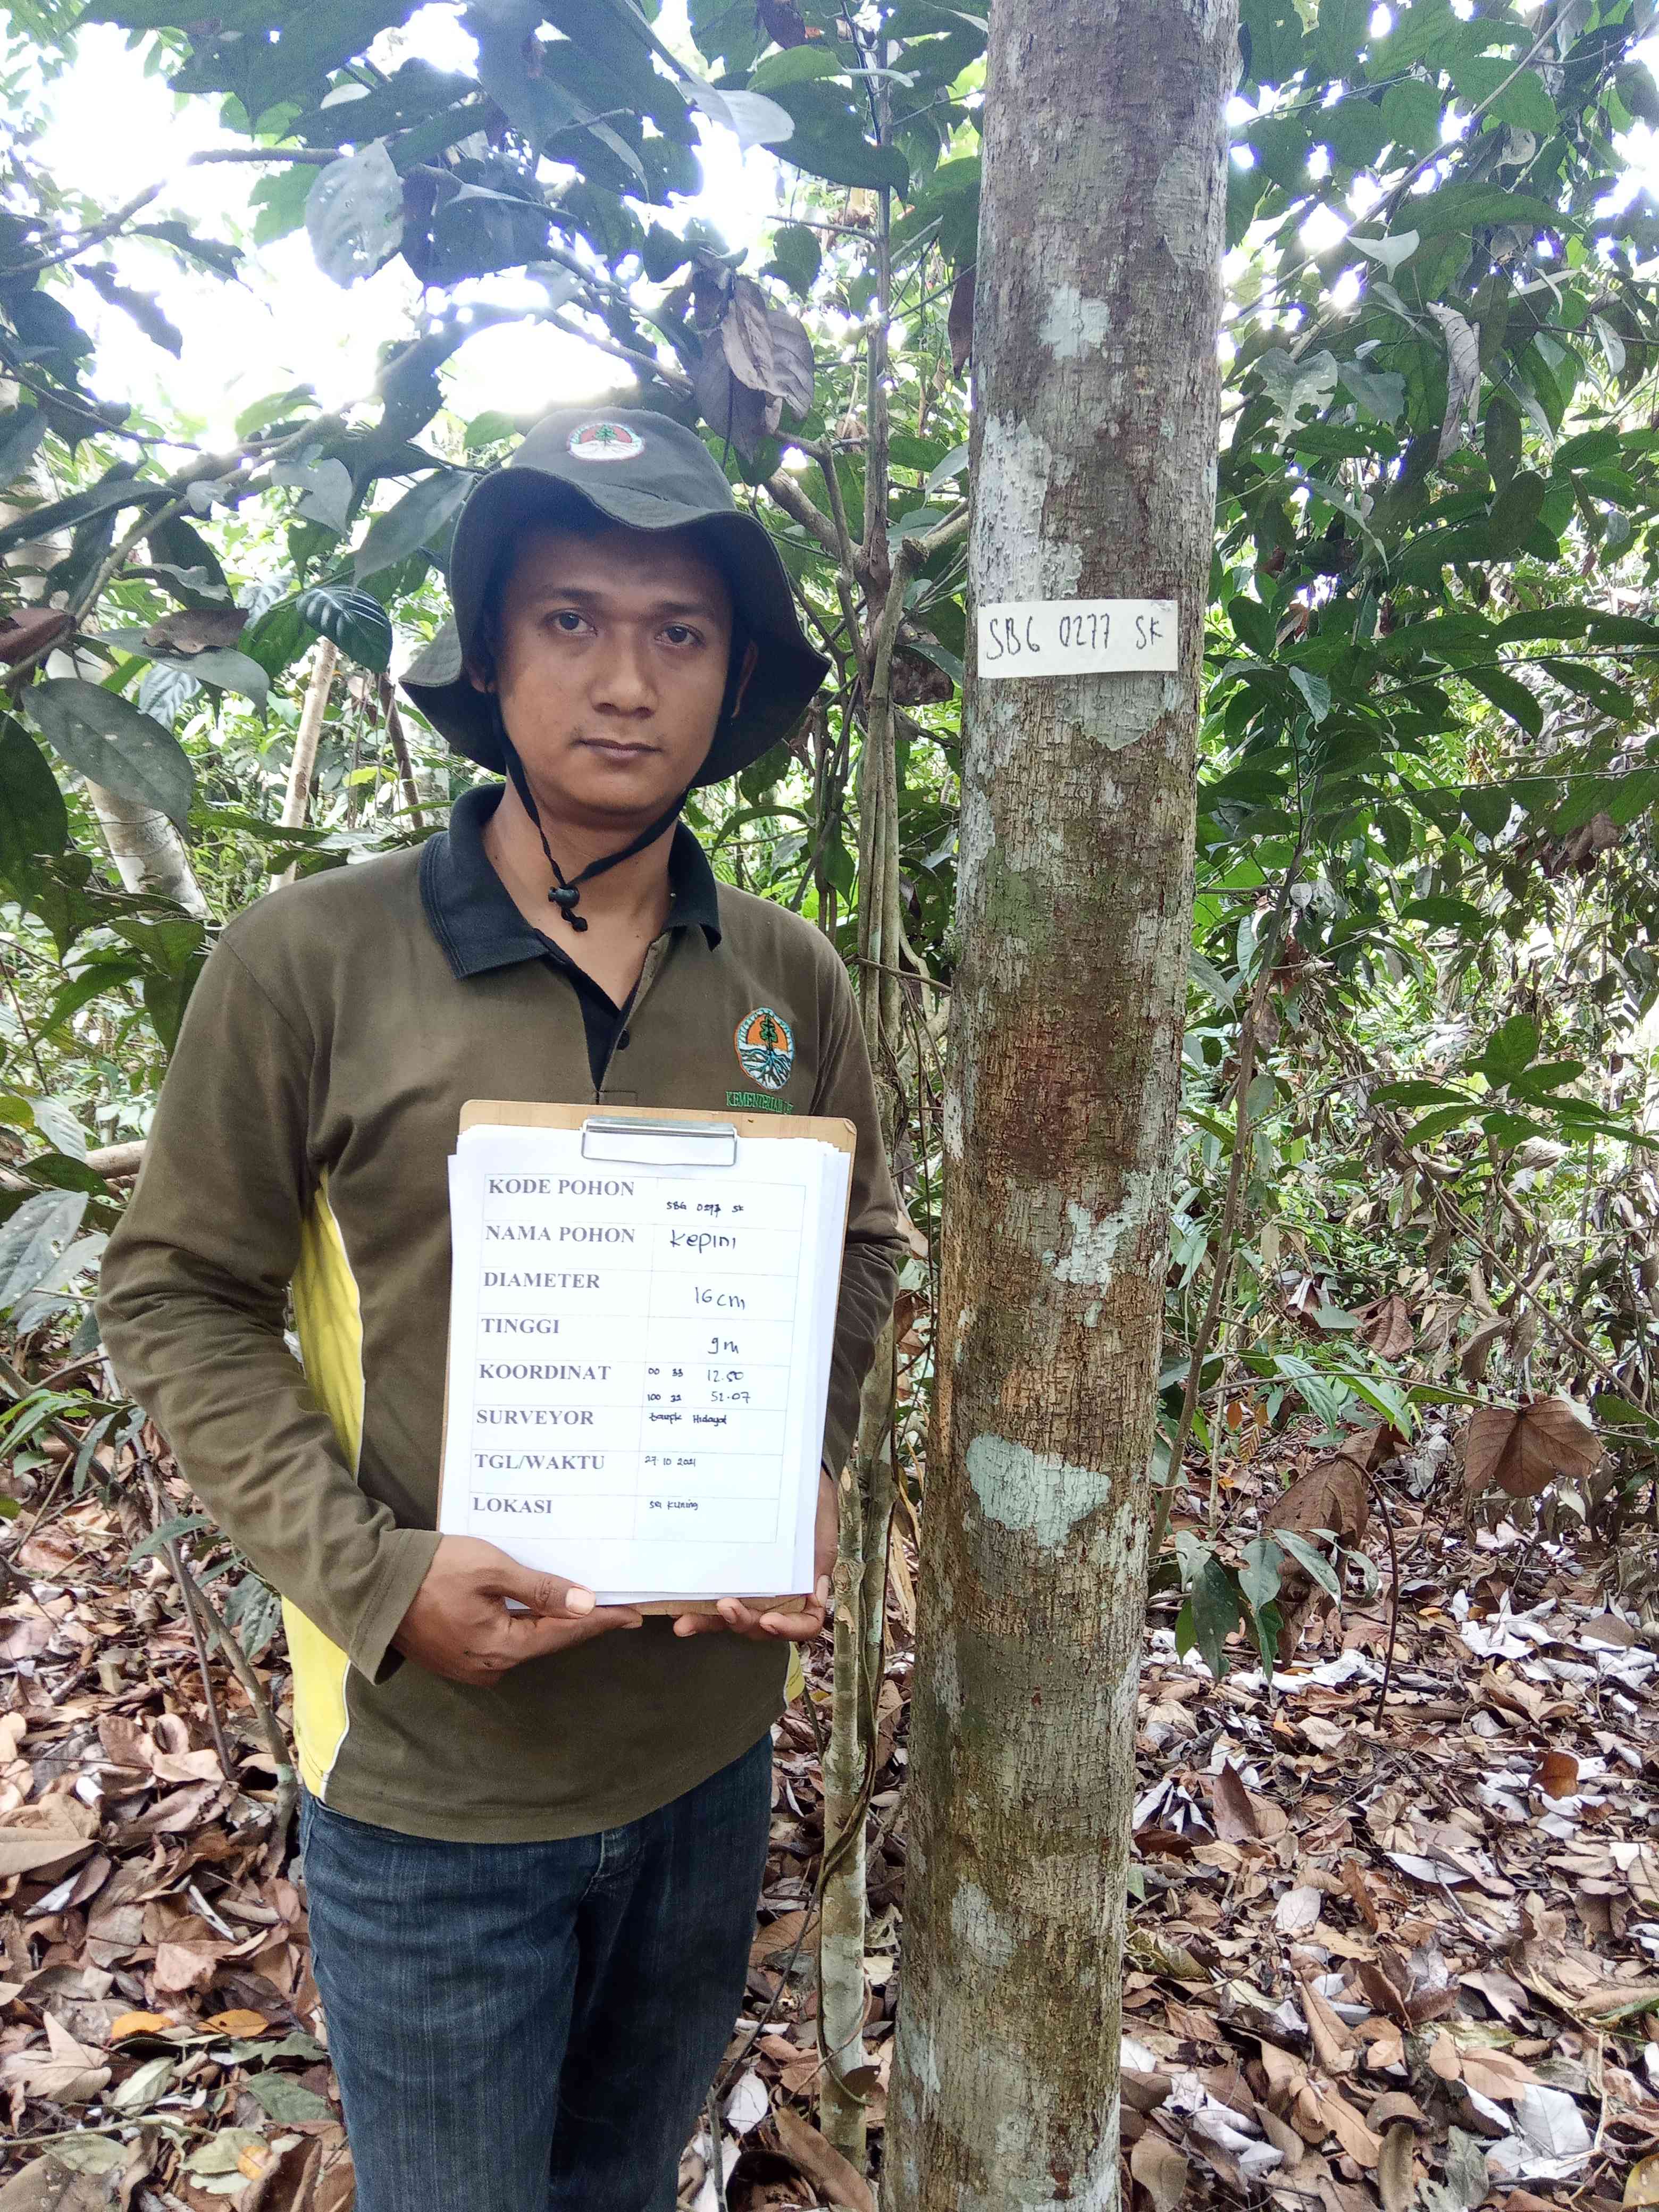 SBG 0277 SK
KEMENTERIAN
KODE POHON SBG 0277 SK
NAMA POHON Kepini
DIAMETER 16 cm
TINGGI 9 m
KOORDINAT 00 33 12.50
100 32 52.07
SURVEYOR Hidayat
TGL/WAKTU 27 10 2021
LOKASI Kuning